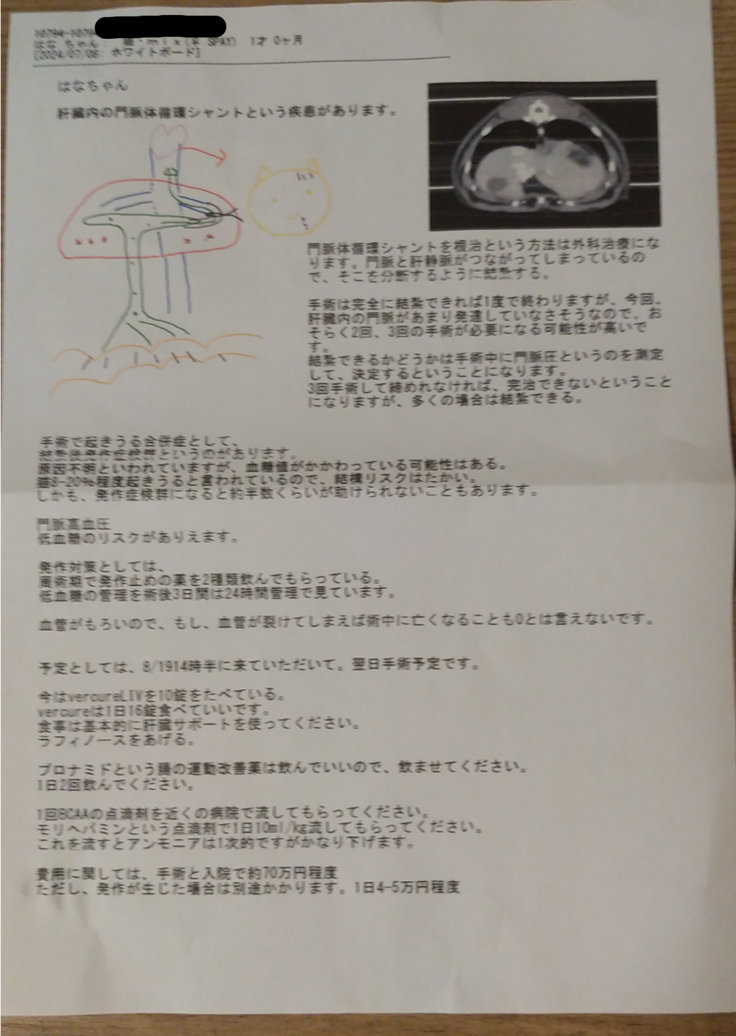 はな ちゃん: 猫・mix(♀ SPAY) 1才 0ヶ月
[2024/07/08: ホワイトボード]
はなちゃん
肝臓内の門脈体循環シャントという疾患があります。
門脈体循環シャントを根治という方法は外科治療にな
ります。門脈と肝静脈がつながってしまっているの
で、そこを分断するように結紮する。
手術は完全に結紮できれば1度で終わりますが、今回、
肝臓内の門脈があまり発達していなさそうなので、お
そらく2回、3回の手術が必要になる可能性が高いで
す。
結紮できるかどうかは手術中に門脈圧というのを測定
して、決定するということになります。
3回手術して締めれなければ、完治できないということ
になりますが、多くの場合は結紮できる。
手術で起きうる合併症として、
結紮後発作症候群というのがあります。
原因不明といわれていますが、血糖値がかかわっている可能性はある。
猫8-20%程度起きうると言われているので、結構リスクはたかい。
しかも、発作症候群になると約半数くらいが助けられないこともあります。
門脈高血圧
低血糖のリスクがありえます。
発作対策としては、
周術期で発作止めの薬を2種類飲んでもらっている。
低血糖の管理を術後3日間は24時間管理で見ています。
血管がもろいので、もし、血管が裂けてしまえば術中に亡くなることも0とは言えないです。
予定としては、8/1914時半に来ていただいて。翌日手術予定です。
今はvercureLIVを10錠をたべている。
vercureは1日16錠食べていいです。
食事は基本的に肝臓サポートを使ってください。
ラフィノースをあげる。
プロナミドという腸の運動改善薬は飲んでいいので、飲ませてください。
1日2回飲んでください。
1回BCAAの点滴剤を近くの病院で流してもらってください。
モリヘパミンという点滴剤で1日10ml/kg流してもらってください。
これを流すとアンモニアは1次的ですがかなり下げます。
費用に関しては、手術と入院で約70万円程度
ただし、発作が生じた場合は別途かかります。1日4-5万円程度